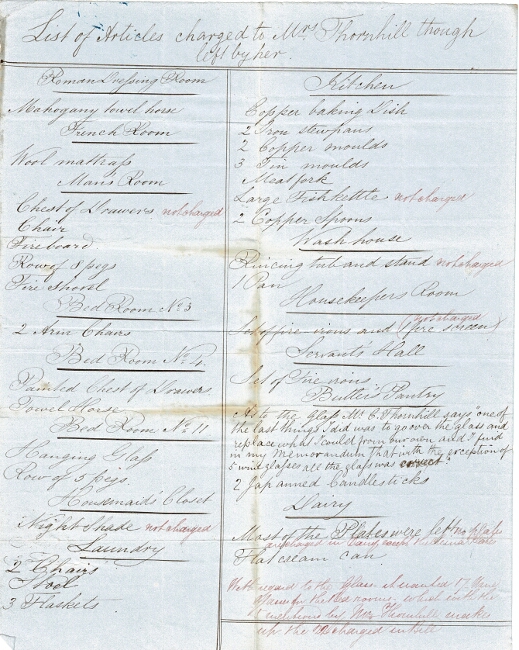 List of Articles charged to Mrs Thornhill though
left by her
Roman Dressing Room
Mahogany towel horse
French Room
Wool mattrass
Man's Room
Chest of Drawers not charged
Chair
Fireboard
Row of 8 pegs
Fire Shovel
Bed Room No 3
2 Arm Chairs
Bed Room No 4
Painted Chest of Drawers
Towel Horse
Bed Room No 11
Hanging Glass
Row of 5 pegs
Housemaids' Closet
Night Shade not charged
Laundry
2 Chairs
Stool
3 Flaskets
Kitchen
Copper baking Dish
2 Iron stewpans
2 Copper moulds
3 Tin moulds
Meat fork
Large Fishkettle not charged
2 Copper Spoons
Wash house
Rincing tub and stand not charged
1 Pan
Housekeepers Room
not charged
Set of fire irons and (fire screen)
Servants Hall
Set of Fire irons
Butler's Pantry
As to the glass Mr C Thornhill says "one of
the last things I did was to go over the glass and
replace what I could from our own and I find
in my Memorandum that with the exception of
5 wine glasses all the glass was correct"
2 Japanned Candlesticks
Dairy
Most of the Plates were left no plates
charged in
Flat cream can
With regard to the Glass
which with the
by Mrs Thornhill makes
up the charged